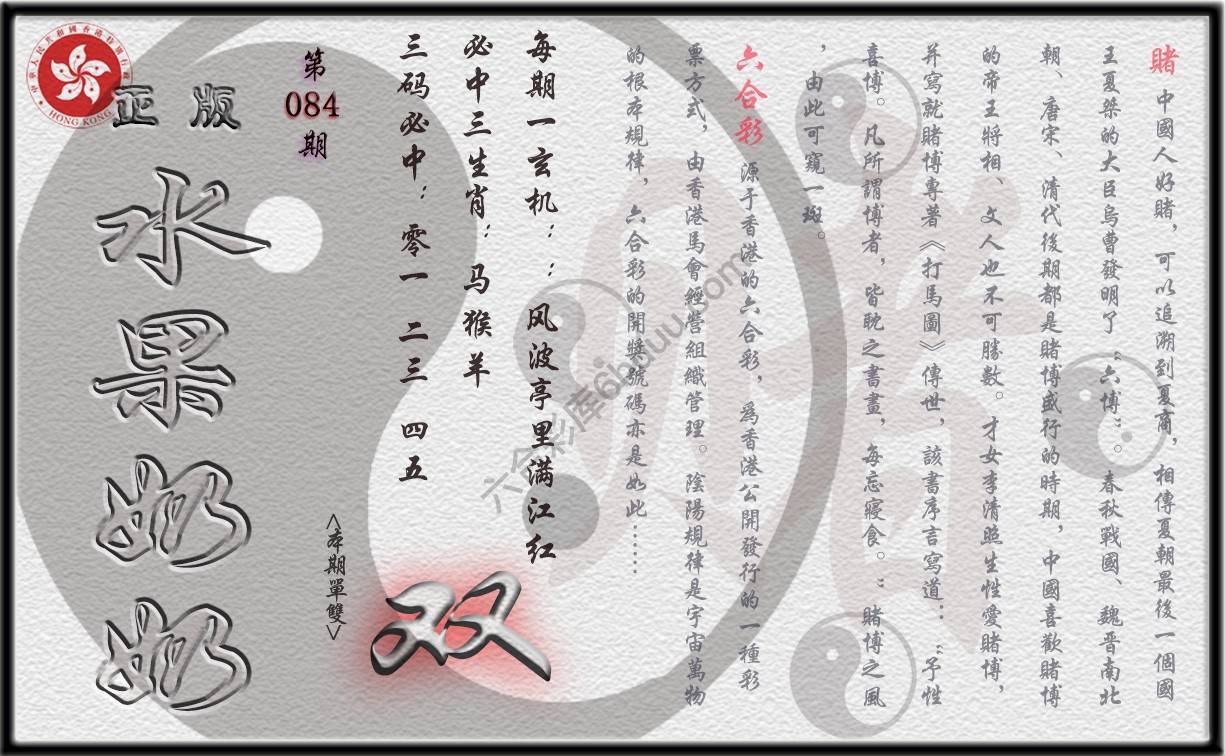 賭 中國人好賭，可以追溯到夏商，相傳夏朝最後一個國
王夏桀的大臣烏曹發明了“六博”。春秋戰國、魏晉南北
朝、唐宋、清代後期都是賭博盛行的時期，中國喜歡賭博
的帝王將相、文人也不可勝數。才女李清照生性愛賭博，
并寫就賭博專著《打馬圖》傳世，該書序言寫道：“予性
喜博。凡所謂博者，皆耽之書畫，每忘寢食。”賭博之風
，由此可窺一斑。
六合彩 源于香港的六合彩，爲香港公開發行的一種彩
票方式，由香港馬會經營組織管理。陰陽規律是宇宙萬物
的根本規律，六合彩的開獎號碼亦是如此……
每期一玄机：：风波亭里满江红
必中三生肖：马猴羊
三码必中：零一 二三 四五
<本期單雙>
双
第
084
期
正版
水果奶奶
HONG KONG
中華人民共和國香港特別行政區
六合彩库6hduu.com